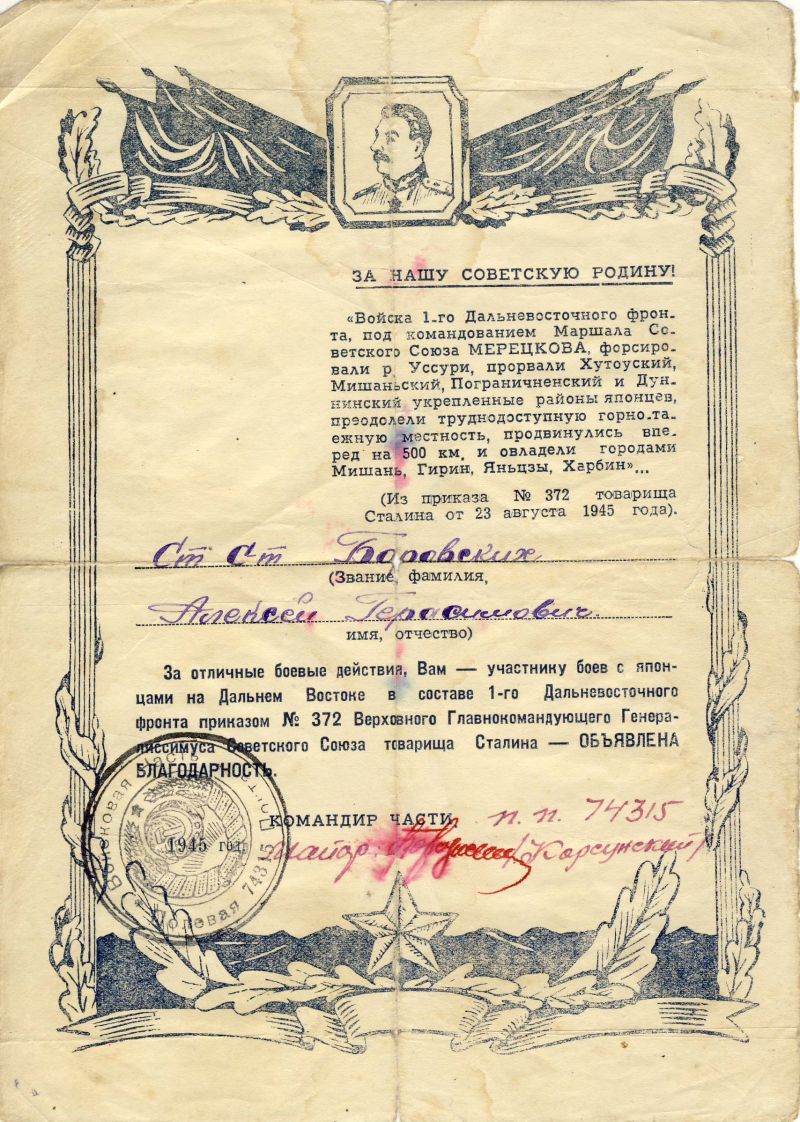 ЗА НАШУ СОВЕТСКУЮ РОДИНУ!
«Войска 1-го Дальневосточного фрон-
та, под командованием Маршала Со-
ветского Союза МЕРЕЦКОВА, форсиро-
вали р. Уссури, прорвали Хутоуский,
Мишаньский, Пограничненский и Дун-
нинский укрепленные районы японцев,
преодолели труднодоступную горно-та-
ежную местность, продвинулись впе-
ред на 500 км. и овладели городами
Мишань, Гирин, Яньцзы, Харбин»...
(Из приказа № 372 товарища
Сталина от 23 августа 1945 года).
Ст Ст Боровских
(Звание, фамилия,
Алексей Герасимович.
имя, отчество)
За отличные боевые действия, Вам — участнику боев с япон-
цами на Дальнем Востоке в составе 1-го Дальневосточного
фронта приказом № 372 Верховного Главнокомандующего Генера-
лиссимуса Советского Союза товарища Сталина — ОБЪЯВЛЕНА
БЛАГОДАРНОСТЬ.
КОМАНДИР ЧАСТИ п.п. 74315
1945 год. Майор. /Корсунский/
Войсковая часть
Полевая 74315